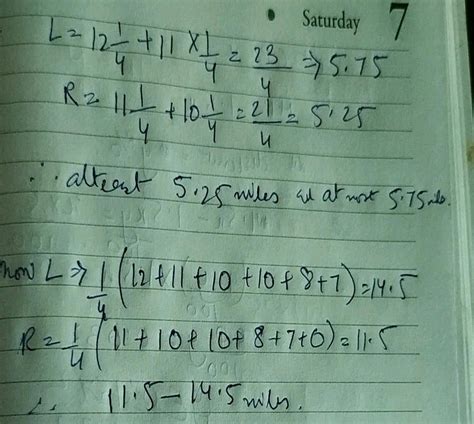 Saturday 7
L = 12 1/4 + 11 × 1/4 = 23/4 ⇒ 5.75
R = 11 1/4 + 10 1/4 = 21/4 = 5.25
∴ atleast 5.25 miles and at most 5.75 miles.
now L ⇒ 1/4 (12+11+10+10+8+7) = 14.5
R = 1/4 (11+10+10+8+7+0) = 11.5
∴ 11.5 – 14.5 miles.